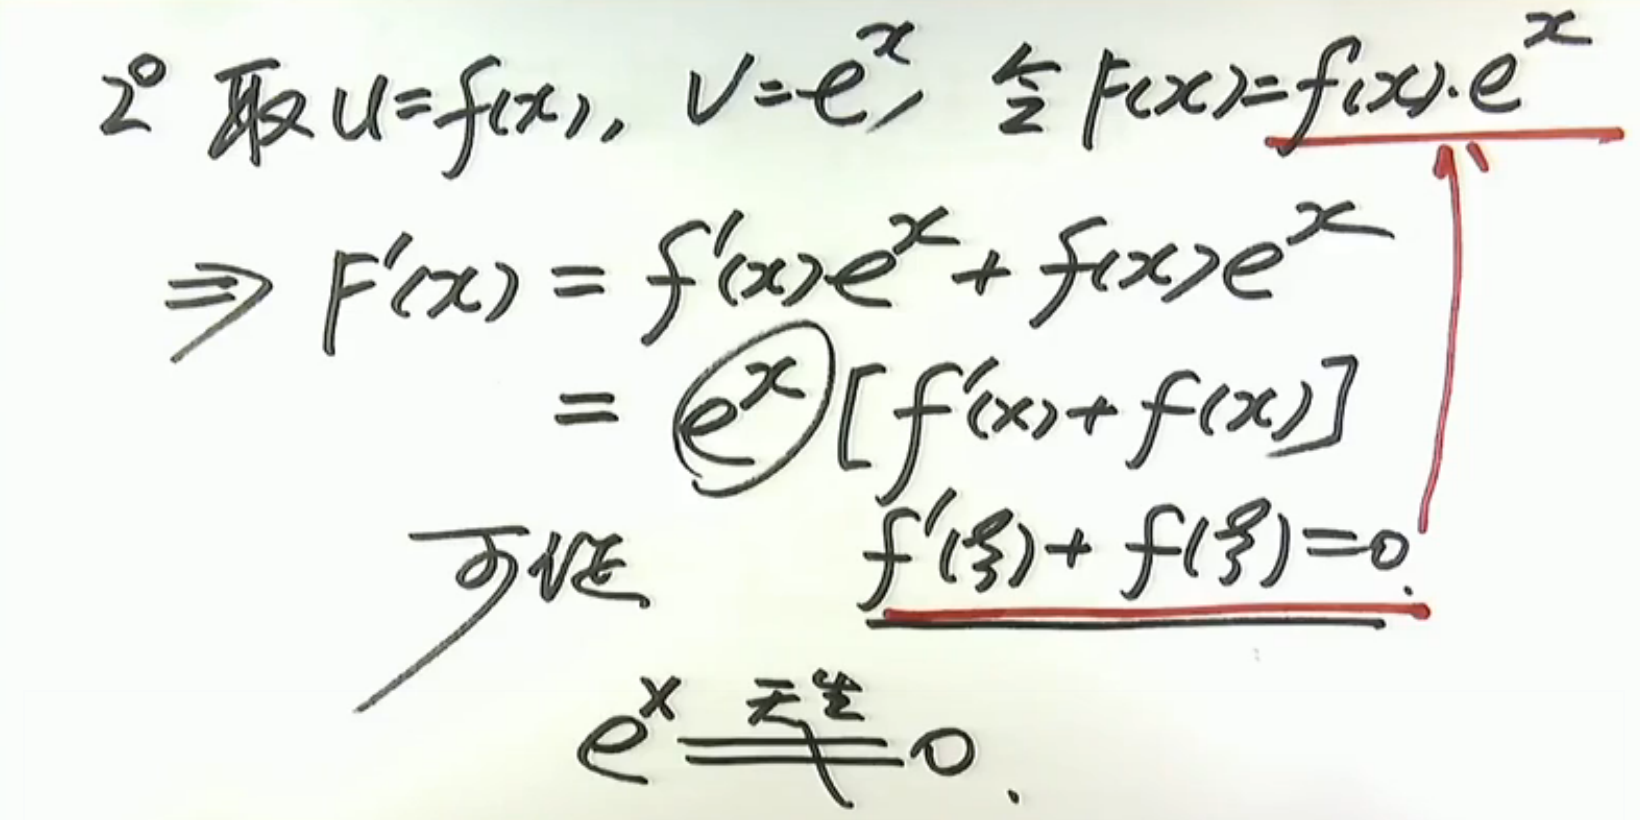 2° 取 u=f(x), v=eˣ, 令 F(x)=f(x)·eˣ
⇒ F'(x) = f'(x)eˣ + f(x)eˣ
= eˣ [f'(x)+f(x)]
可证 f'(ξ)+f(ξ)=0.
eˣ 天生≠ 0.